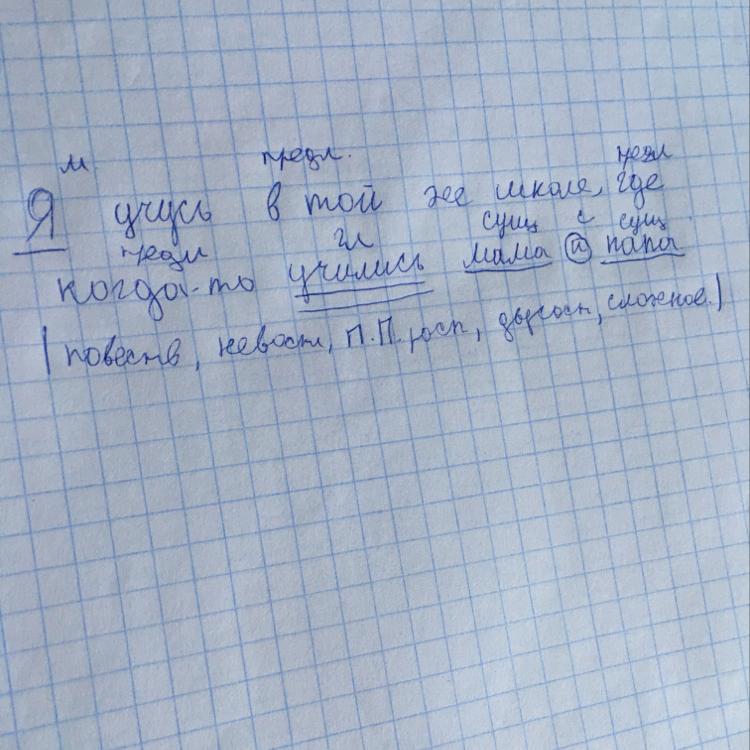 м предл. предл
Я учусь в той же школе, где
предл гл сущ с сущ
когда-то учились мама и папа
(повеств, невоскл, П.П. росп, двусост, сложное.)